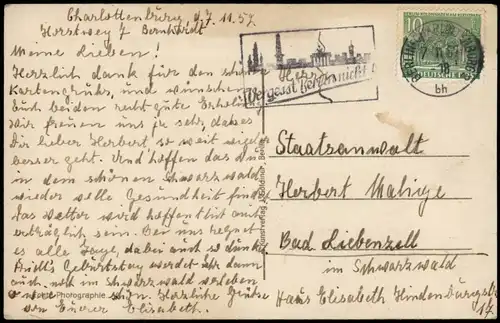 Charlottenburg, d. 7.11.57.
Herrstweg 7 Bernhardt
Meine Lieben!
Herzlich dank für den schönen
Kartengruß, und wünschen
Euch beiden recht gute Erholung
Wir freuen uns ja sehr, daß es
Dir lieber Herbert, so weit wieder
besser geht. Und hoffen das du
in dem schönen Schwarzwald
wieder volle Gesundheit findest
das Wetter wird hoffentlich auch
erträglich sein. Bei uns regnet
es alle Tage, dabei auch so dunkel
Geburtstag werdet ihr dann
auch noch im Schwarzwald verleben
schon. Herzliche Grüße
von Eurer Elisabeth.
Echte Photographie
Kunstverlag J. Goldiner, Berlin
Vergesst Berlin nicht!
10
BERLIN
bh
Herrn
Staatsanwalt
Herbert Malige
Bad Liebenzell
im Schwarzwald
Haus Elisabeth Hindenburgstr.
17